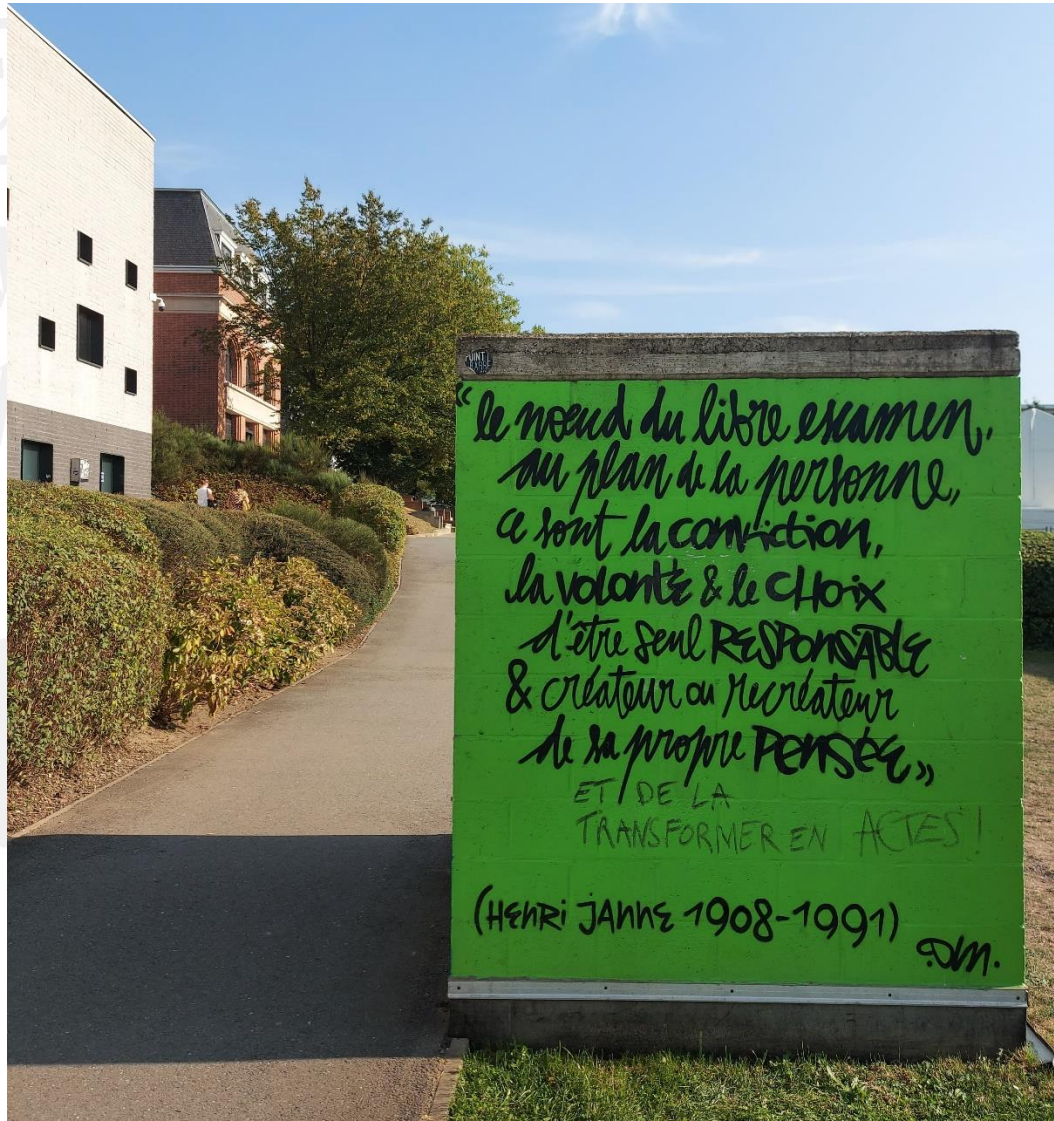 “le nœud du libre examen,
au plan de la personne,
ce sont la conviction,
la volonté & le CHOIX
d'être seul RESPONSABLE
& créateur ou recréateur
de sa propre PENSÉE”
ET DE LA
TRANSFORMER EN ACTES !
(HENRI JANNE 1908-1991)